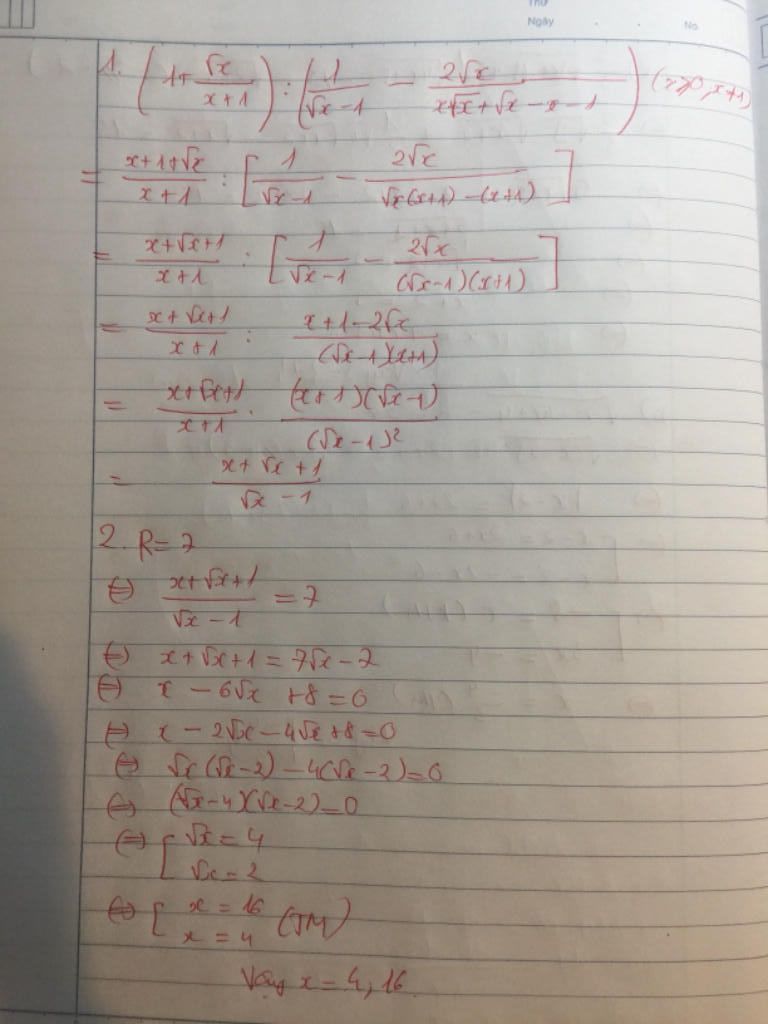 Thứ
Ngày . . No.
1. (1+ √x/(x+1)) : (1/(√x-1) - 2√x/(x√x+√x-x-1)) (x≥0, x≠1)
= (x+1+√x)/(x+1) : [1/(√x-1) - 2√x/(√x(x+1)-(x+1))]
= (x+√x+1)/(x+1) : [1/(√x-1) - 2√x/((√x-1)(x+1))]
= (x+√x+1)/(x+1) : (x+1-2√x)/((√x-1)(x+1))
= (x+√x+1)/(x+1) . (x+1)(√x-1)/(√x-1)²
= (x+√x+1)/(√x-1)
2. R=7
⇔ (x+√x+1)/(√x-1) = 7
⇔ x+√x+1 = 7√x-7
⇔ x - 6√x +8 = 0
⇔ x - 2√x - 4√x+8=0
⇔ √x(√x-2) - 4(√x-2)=0
⇔ (√x-4)(√x-2)=0
⇔ [ √x = 4
√x = 2
⇔ [ x = 16
x = 4 (TM)
Vậy x = 4, 16